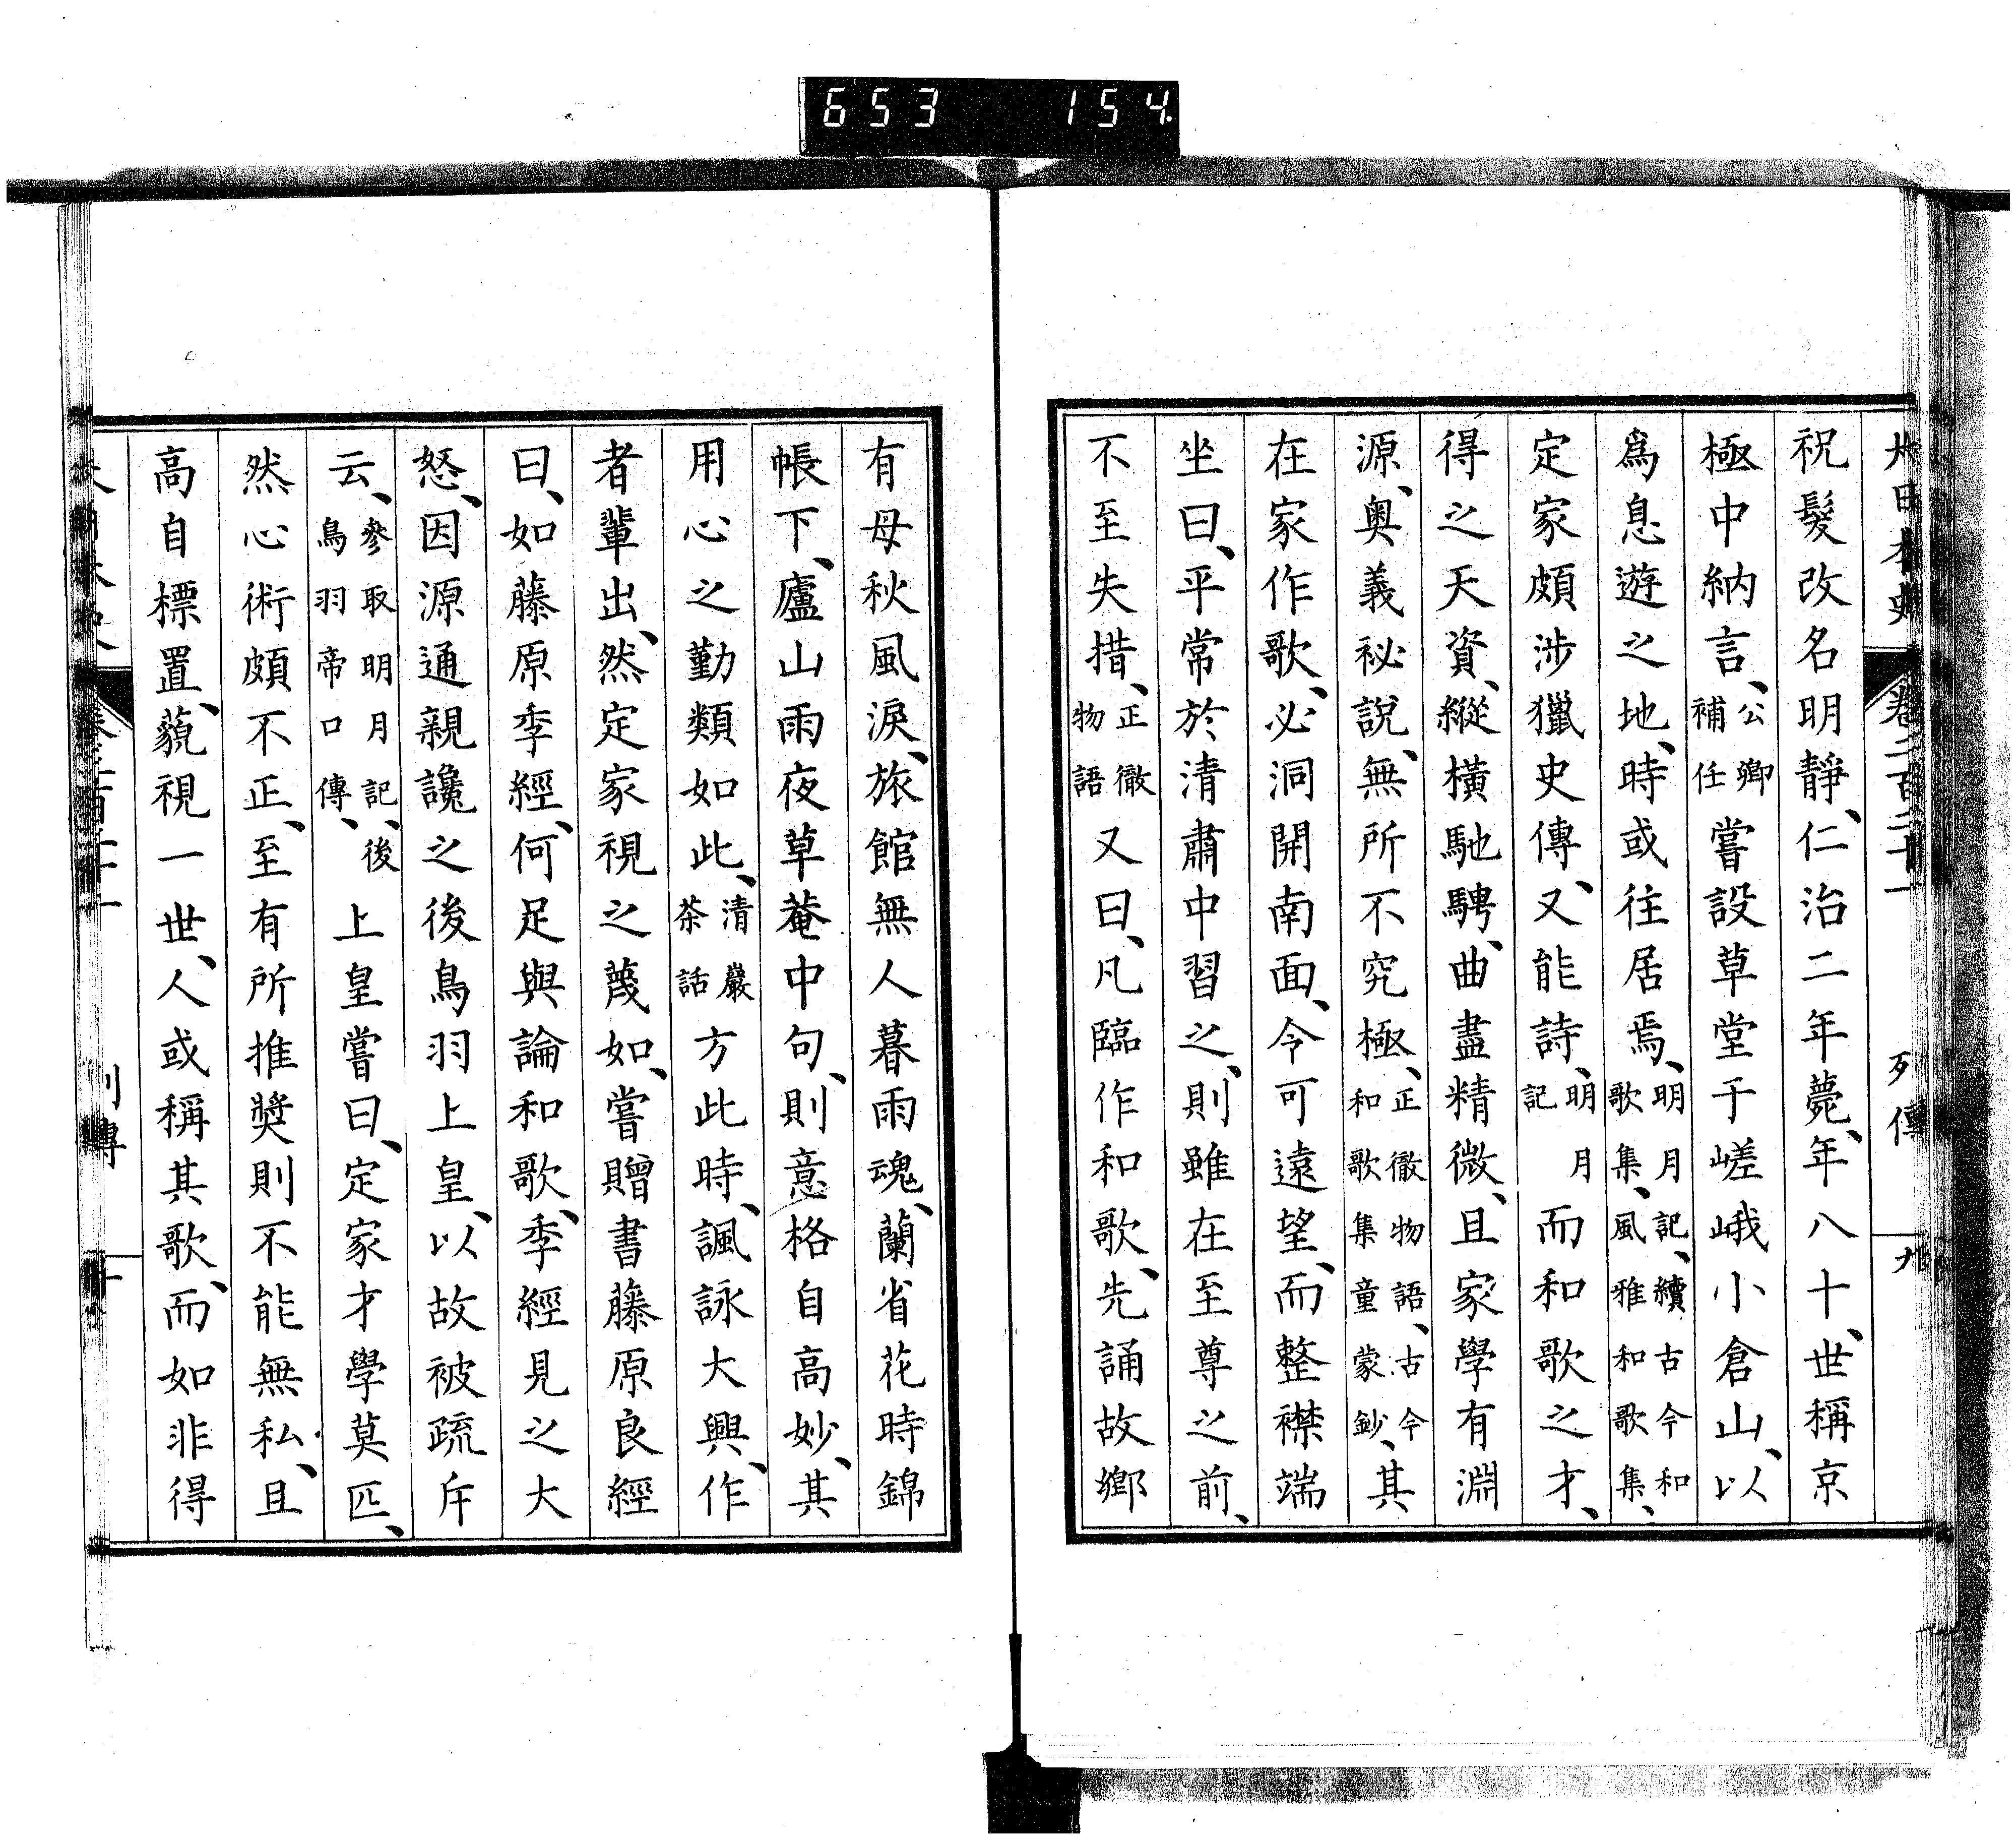 653 154.
大日本史 卷二百二十一 列傳 九
祝髮改名明靜、仁治二年薨、年八十、世稱京
極中納言、公卿補任嘗設草堂于嵯峨小倉山、以
爲息遊之地、時或往居焉、明月記、續古今和歌集、風雅和歌集、
定家頗涉獵史傳、又能詩、明月記而和歌之才、
得之天資、縱橫馳騁、曲盡精微、且家學有淵
源、奥義祕說、無所不究極、正徹物語、古今和歌集童蒙鈔、其
在家作歌、必洞開南面、令可遠望、而整襟端
坐曰、平常於清肅中習之、則雖在至尊之前、
不至失措、正徹物語又曰、凡臨作和歌、先誦故鄉
有母秋風淚、旅館無人暮雨魂、蘭省花時錦
帳下、廬山雨夜草菴中句、則意格自高妙、其
用心之勤類如此、清巖茶話方此時、諷詠大興、作
者輩出、然定家視之蔑如、嘗贈書藤原良經
曰、如藤原季經、何足與論和歌、季經見之大
怒、因源通親讒之後鳥羽上皇、以故被疏斥
云、參取明月記、後鳥羽帝口傳、上皇嘗曰、定家才學莫匹、
然心術頗不正、至有所推奬則不能無私、且
高自標置、藐視一世、人或稱其歌、而如非得
列傳